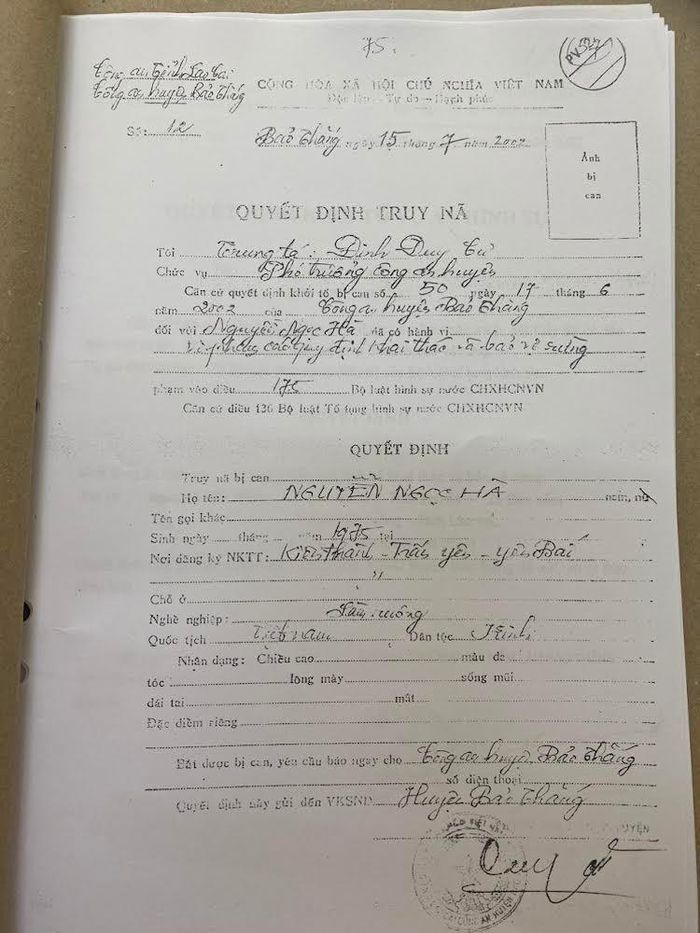 75.
PV 327
Công an tỉnh Lào Cai
Công an huyện Bảo Thắng
CỘNG HÒA XÃ HỘI CHỦ NGHĨA VIỆT NAM
Độc lập - Tự do - Hạnh phúc
Số: 12
Bảo Thắng ngày 15 tháng 7 năm 2002
Ảnh
bị
can
QUYẾT ĐỊNH TRUY NÃ
Tôi Trung tá: Đinh Duy Tư
Chức vụ Phó trưởng công an huyện
Căn cứ quyết định khởi tố bị can số 50 ngày 17 tháng 6
năm 2002 của Công an huyện Bảo Thắng
đối với Nguyễn Ngọc Hà đã có hành vi
Vi phạm các quy định khai thác và bảo vệ rừng
phạm vào điều 175 Bộ luật hình sự nước CHXHCNVN
Căn cứ điều 136 Bộ luật Tố tụng hình sự nước CHXHCNVN
QUYẾT ĐỊNH
Truy nã bị can
Họ tên: NGUYỄN NGỌC HÀ nam, nữ
Tên gọi khác
Sinh ngày tháng năm 1975 tại
Nơi đăng ký NKTT: Kiên Thành - Trấn Yên - Yên Bái
Chỗ ở "
Nghề nghiệp: Làm ruộng
Quốc tịch Việt nam Dân tộc Kinh
Nhận dạng: Chiều cao màu da
tóc lông mày sống mũi
dái tai mắt
Đặc điểm riêng
Bắt được bị can, yêu cầu báo ngay cho Công an huyện Bảo Thắng
số điện thoại
Quyết định này gửi đến VKSND Huyện Bảo Thắng